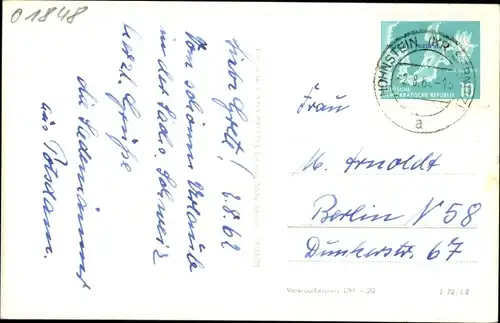 01848
Liebe Gretl! 2.8.62
Vom schönen Urlaub
in der Sächs. Schweiz
herzl. Grüße
die
aus Potsdam.
HOHNSTEIN (KR. SEBNITZ)
a
DEUTSCHE
DEMOKRATISCHE REPUBLIK
10
Frau
M. Arnoldt
Berlin N 58
Dunkerstr. 67
Verbraucherpreis DM -,20